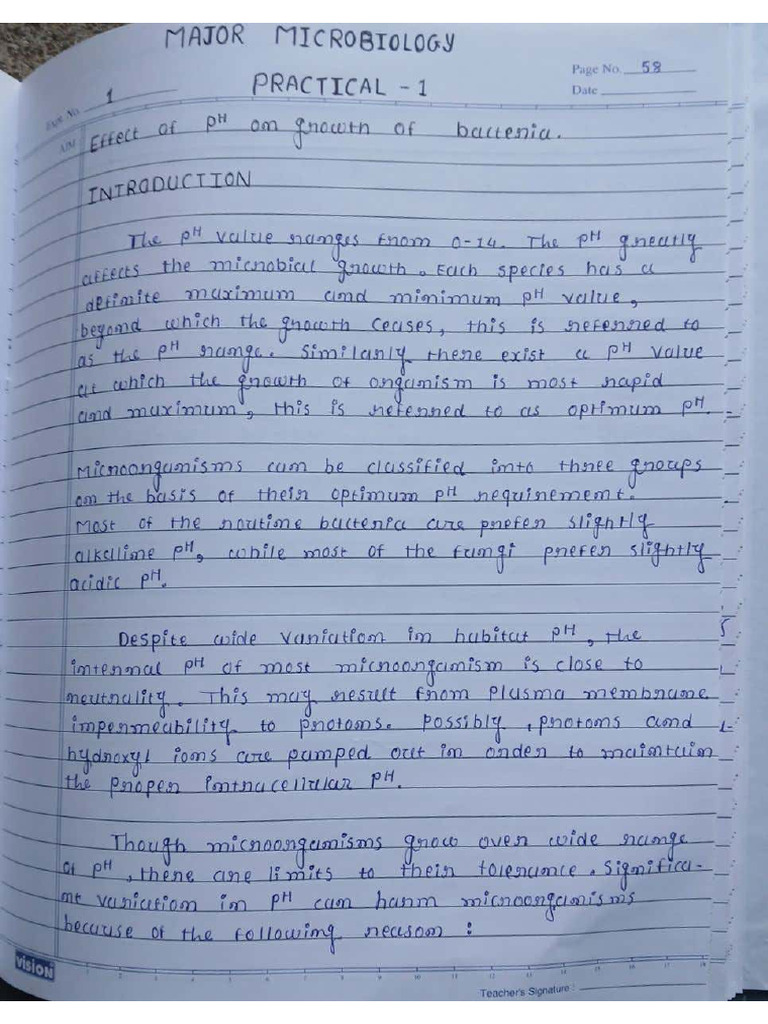 MAJOR MICROBIOLOGY
Page No. 58
PRACTICAL - 1
Date
Expt. No. 1
AIM Effect of pH on growth of bacteria.
INTRODUCTION
The pH value ranges from 0-14. The pH greatly
affects the microbial growth. Each species has a
definite maximum and minimum pH value,
beyond which the growth ceases, this is referred to
as the pH range. Similarly there exist a pH value
at which the growth of organism is most rapid
and maximum, this is referred to as optimum pH.
Microorganisms can be classified into three groups
on the basis of their optimum pH requirement.
Most of the routine bacteria are prefer slightly
alkaline pH, while most of the fungi prefer slightly
acidic pH.
Despite wide variation in habitat pH, the
internal pH of most microorganism is close to
neutrality. This may result from Plasma membrane
impermeability to protons. Possibly, protons and
hydroxyl ions are pumped out in order to maintain
the proper intracellular pH.
Though microorganisms grow over wide range
of pH, there are limits to their tolerance. Significa-
nt variation in pH can harm microorganisms
because of the following reason :
vision
1 2 3 4 5 6 7 8 9 10 11 12 13 14 15 16 17 18
Teacher's Signature :